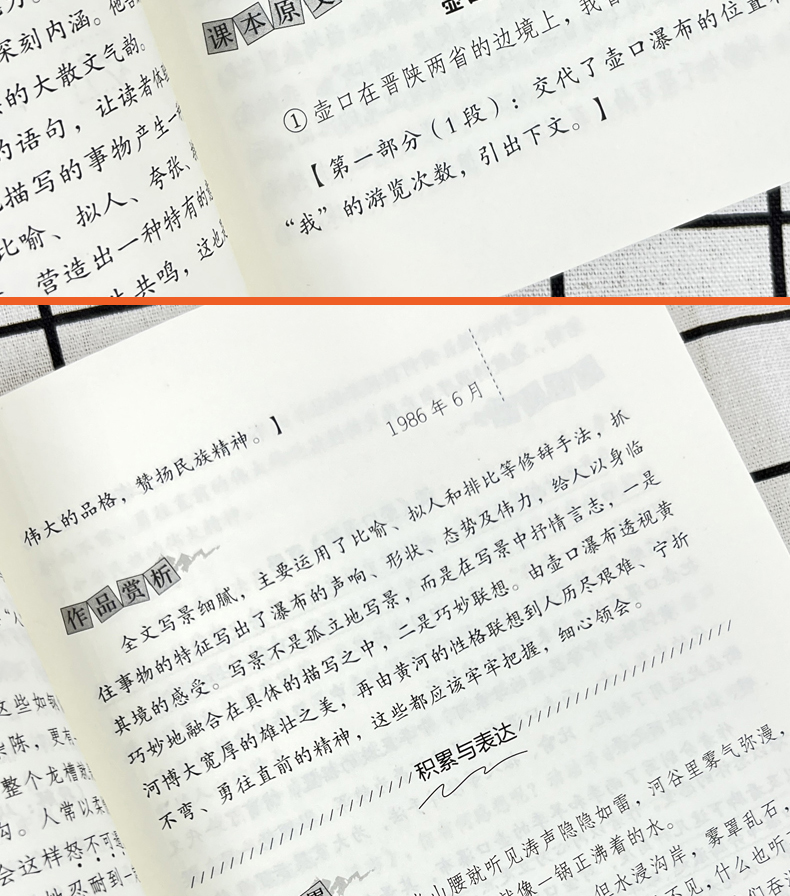 力。
深刻内涵。
的大散文气韵。
的语句，让读者体验
描写的事物产生一
比喻、拟人、夸张、
营造出一种特有的
共鸣，这也
课本原文
壶口
①壶口在晋陕两省的边境上，我
【第一部分（1段）：交代了壶口瀑布的位置和
“我”的游览次数，引出下文。】
伟大的品格，赞扬民族精神。】
1986年6月
作品赏析
全文写景细腻，主要运用了比喻、拟人和排比等修辞手法，抓
住事物的特征写出了瀑布的声响、形状、态势及伟力，给人以身临
其境的感受。写景不是孤立地写景，而是在写景中抒情言志，一是
巧妙地融合在具体的描写之中，二是巧妙联想。由壶口瀑布透视黄
河博大宽厚的雄壮之美，再由黄河的性格联想到人历尽艰难、宁折
不弯、勇往直前的精神，这些都应该牢牢把握，细心领会。
积累与表达
这些如
陈，更有
整个龙槽
沟。人常以柔
会这样怒不可
忍耐到一
山腰就听见涛声隐隐如雷，河谷里雾气弥漫，
就像一锅正沸着的水。
但水浸沟岸，雾罩乱石，
不见，什么也听